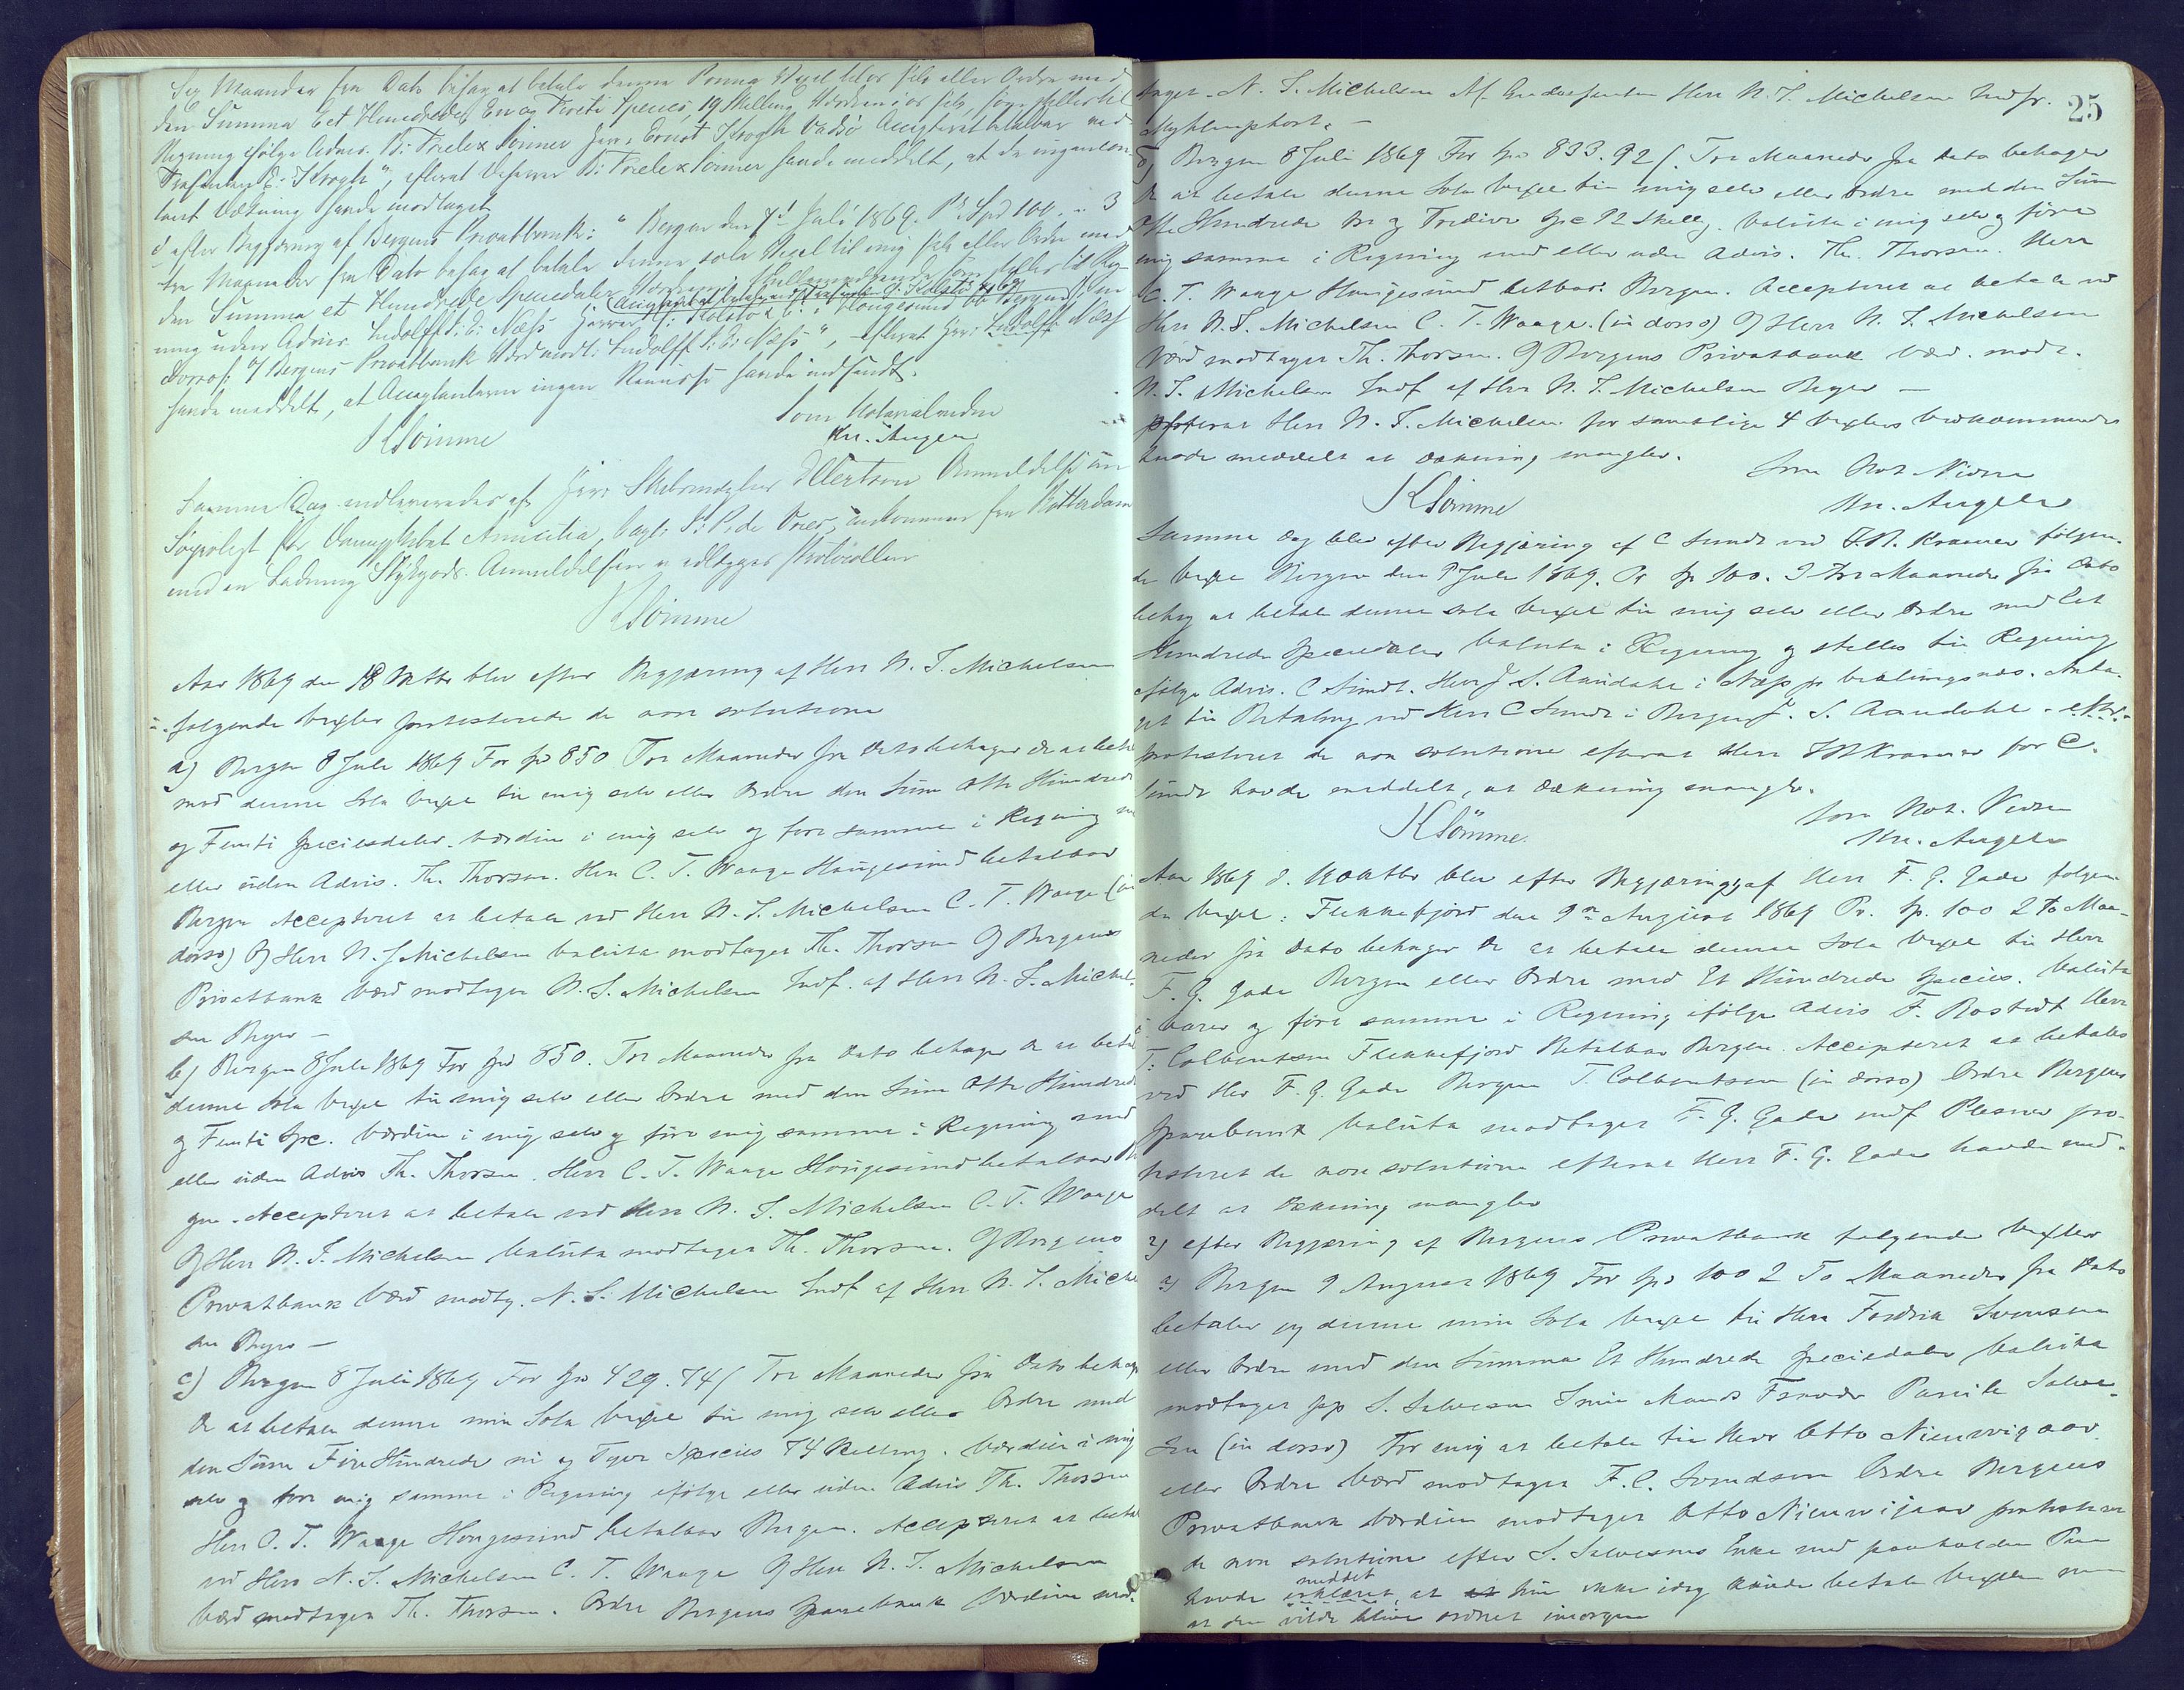 Sex Maaneder fra Dato behag at betale denne Prima Vexel til os selv eller Ordre med
den Summa Eet Hundrede En og Species, 19 Skilling, Værdien i os selv, som stilles til
Regning ifølge Advis. B: Friele & Sønner Herr Ernst Krogh Vadsø Accepteret betalbar ved
E: Krogh", efterat Herrer B: Friele & Sønner havde meddelt, at de ingen
Dækning havde modtaget
d efter Begjæring af Bergens Privatbank: "Bergen den 7d Juli 1869. Pr Spd 100. " 3
tre Maaneder fra Dato behag at betale denne sola Vexel til mig selv eller Ordre med
den Summa et Hundrede Speciedaler som stilles til Reg-
ning uden Advis. Ludolff J: E: Næss Herrer
Bergens Privatbank Værd modt: Ludolff J: E: Næss", efterat Herr Ludolff Næss
havde meddelt, at Acceptanterne ingen Remisse havde indsendt.
Som Notarialvidne
KSømme Kn. Angell
Samme Dag indleveredes af Herr Skibsmægler Ellertsen Anmeldelse om
Søprotest for Dampskibet Amicitia, Capt: P: de Vries, ankommen fra Rotterdam
med en Ladning Stykgods. Anmeldelsen er vedlagt Protocollen
KSømme
Aar 1869 den 18 Oktbr blev efter Begjæring af Herr N. S. Michelsen
følgende Vexler protesterede de non solutione
a) Bergen 8 Juli 1869 For Spd 850 Tre Maaneder fra Dato behager De at betale
mod denne Sola Vexel til mig selv eller Ordre den Sum Otte Hundrede
og Femti Speciesdaler. Værdien i mig selv og føre samme i Regning med
eller uden Advis. Th. Thorsen. Herr C. T. Waage Haugesund betalbar
Bergen Accepteret at betale ved Herr N. S. Michelsen C. T. Waage (in
dorso) Herr N. S. Michelsen Valuta modtaget Th. Thorsen Bergens
Privatbank Værd modtagen N. S. Michelsen Indf. af Herr N. S. Michel-
sen Bergen —
b) Bergen 8 Juli 1869 For Spd 850. Tre Maaneder fra Dato behager De at betale
denne Sola Vexel til mig selv eller Ordre med den Sum Otte Hundrede
og Femti Spc. Værdien i mig selv og føre mig samme i Regning med
eller uden Advis Th. Thorsen. Herr C. T. Waage Haugesund betalbar
gen. Accepteret at betale ved Herr N. S. Michelsen C. T. Waage
Herr N. S. Michelsen Valuta modtagen Th. Thorsen. Bergens
Privatbank Værd modtg. N. S. Michelsen Indf af Herr N. S. Michel
sen Bergen —
c) Bergen 8 Juli 1869 For Spd 429. 74 Tre Maaneder fra Dato behag
De at betale denne min Sola Vexel til mig selv eller Ordre med
den Sum Fire Hundrede ni og Tyve Species 74 Skilling. Værdien i mig
selv og føre mig samme i Regning ifølge eller uden Advis Th. Thorsen
Herr C. T. Waage Haugesund betalbar Bergen. Accepteret at betale
ved Herr N. S. Michelsen C. T. Waage Herr N. S. Michelsen
Værd modtagen Th. Thorsen. Ordre Bergens Sparebank Værdien mod-
25
taget. N. S. Michelsen Herr N. S. Michelsen Indfr.
d) Bergen 8 Juli 1869 For Spd 833. 92 Tre Maaneder fra Dato behager
De at betale denne Sola Vexel til mig selv eller Ordre med den Sum
Otte Hundrede Tre og Tredive Spc 92 Skillg. Valuta i mig selv og føre
mig samme i Regning med eller uden Advis. Th. Thorsen. Herr
C. T. Waage Haugesund betbar. Bergen. Accepteret at betale ved
Herr N. S. Michelsen C. T. Waage. (in dorso) Herr N. S. Michelsen
Værd modtagen Th. Thorsen. Bergens Privatbank Værd. modt.
N. S. Michelsen Indf af Herr N. S. Michelsen Bergen —
efterat Herr N. S. Michelsen for samtlige 4 Vexlers Vedkommende
havde meddelt at Dækning mangler.
Som Not Vidne
KSømme Kn. Angell
Samme Dag blev efter Begjæring af C Sundt ved J.R. Kramer følgen-
de Vexel Bergen den 8 Juli 1869. Pr Sp 100. 3 tre Maaneder fra Dato
behag at betale denne sola Vexel til mig selv eller Ordre med Eet
Hundrede Speciedaler Valuta i Regning og stilles til Regning
ifølge Advis. C Sundt. Herr J S. Aandahl i Næss pr Anta-
get til Betaling ved Herr C Sundt i Bergen J. S. Aandahl
protesteret de non solutione efterat Herr JRKramer for C.
Sundt havde meddelt, at Dækning mangler.
Som Not. Vidne
KSømme. Kn. Angell
Aar 1869 d. 19 Oktbr blev efter Begjæring af Herr F. G. Gade følgen-
de Vexel: Flekkefjord den 9de August 1869 Pr. Sp. 100 2 To Maa-
neder fra Dato behager De at betale denne Sola Vexel til Herr
F. G. Gade Bergen eller Ordre med Et Hundrede Species. Valuta
i Varer og føre samme i Regning ifølge Advis F. Bostedt Herr
T. Colbentsen Flekkefjord Betalbar Bergen. Accepteret at betales
ved Herr F. G. Gade Bergen T. Colbentsen (in dorso) Ordre Bergens
Sparebank Valuta modtagen F. G. Gade indf Plesner pro-
testeret de non solutione efterat Herr F. G. Gade havde med-
delt at Dækning mangler
2) efter Begjæring af Bergens Privatbank følgende Vexler
a) Bergen 9 August 1869 For Spd 100 2 To Maaneder fra Dato
betaler jeg denne min Sola Vexel til Herr Fredrik Svensen
eller Ordre med den Summa Et Hundrede Speciedaler Valuta
modtaget pp S. Salvesen Salve-
sen (in dorso) For mig at betale til Herr Otto Nieuwejaar
eller Ordre Værd modtagen F. C. Svendsen Ordre Bergens
Privatbank Værdien modtaget Otto Nieuwejaar protesteret
de non solutione efter S. Salvesens Enke med paaholden Pen
meddelt
havde erklæret, at hun ikke idag kunde betale Vexlen men
at den vilde blive ordnet imorgen